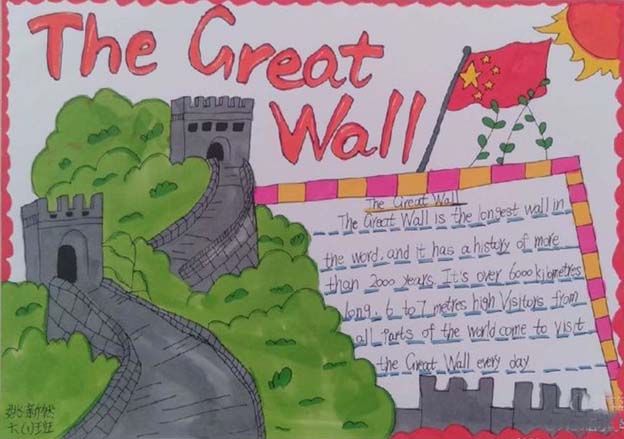 The Great
Wall
The Great Wall
The Great Wall is the longest wall in
the word, and it has a history of more
than 2000 years. It's over 6000 kilometres
long, 6 to 7 metres high Visitors from
all parts of the world come to visit
the Great Wall every day
六(1)班